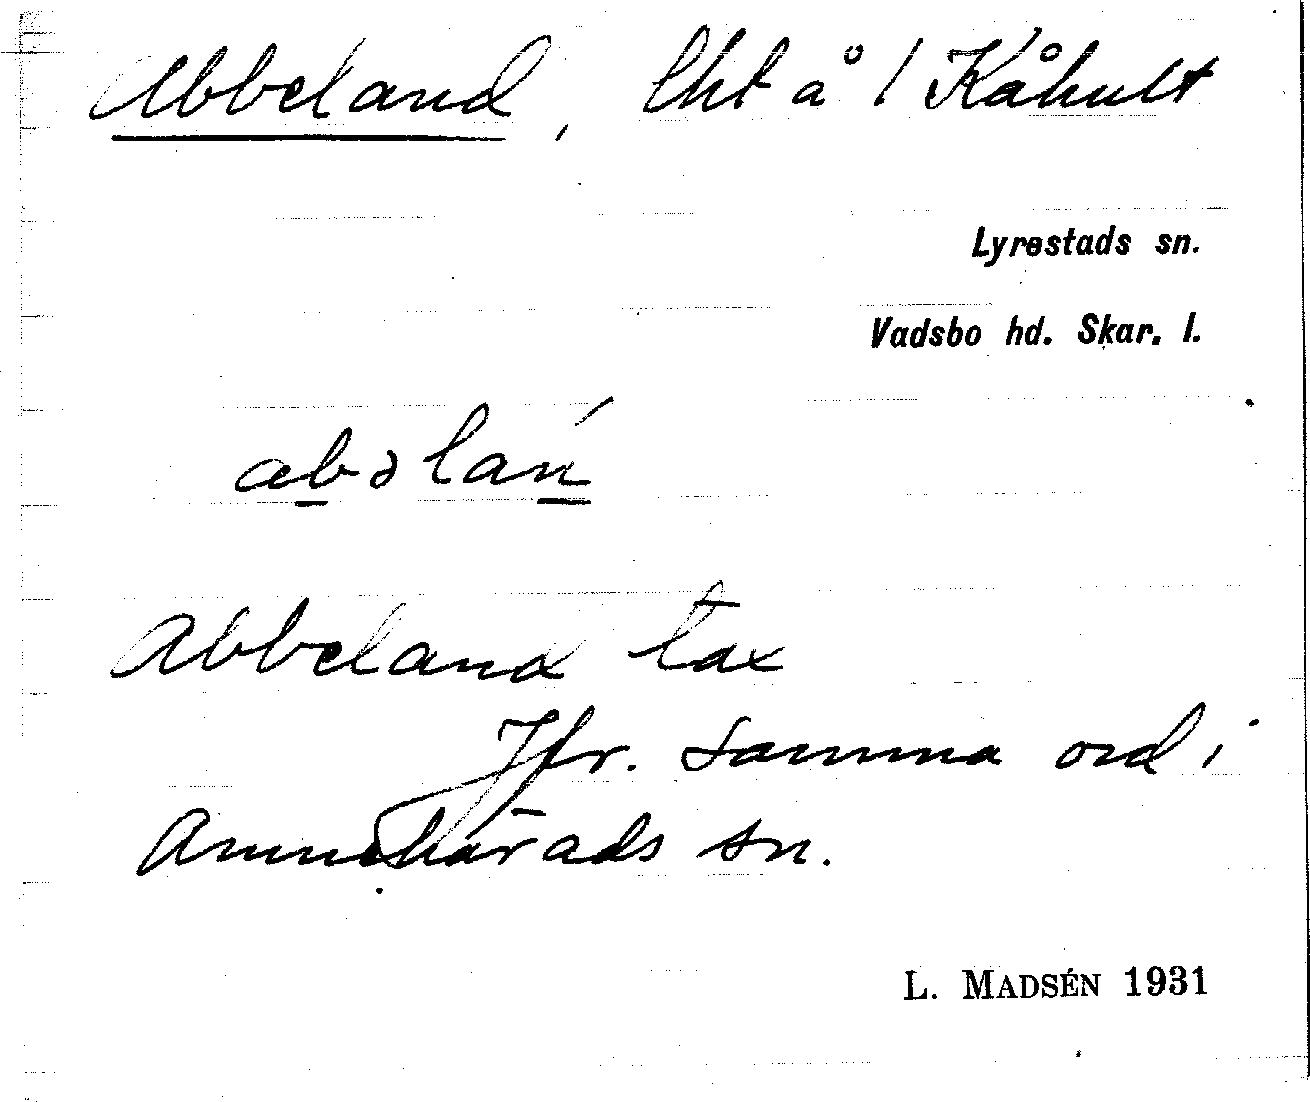 Abbeland, lht å 1 Kåhult
Lyrestads sn.
Vadsbo hd. Skar. l.
abəlań
Abbeland tax
Jfr. samma ord i
Amnehärads sn.
L. MADSÉN 1931